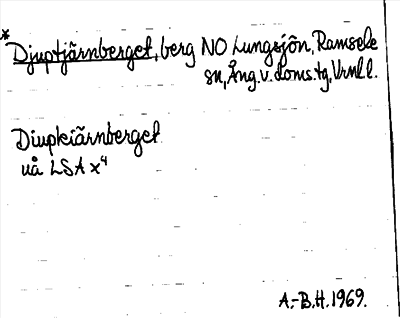 * Djuptjärnberget, berg NO Lungsjön, Ramsele
sn, Ång. v. doms. tg. Vrnl l.
Diupkiärnberget
uå LSA x⁴
A.-B.H. 1969.